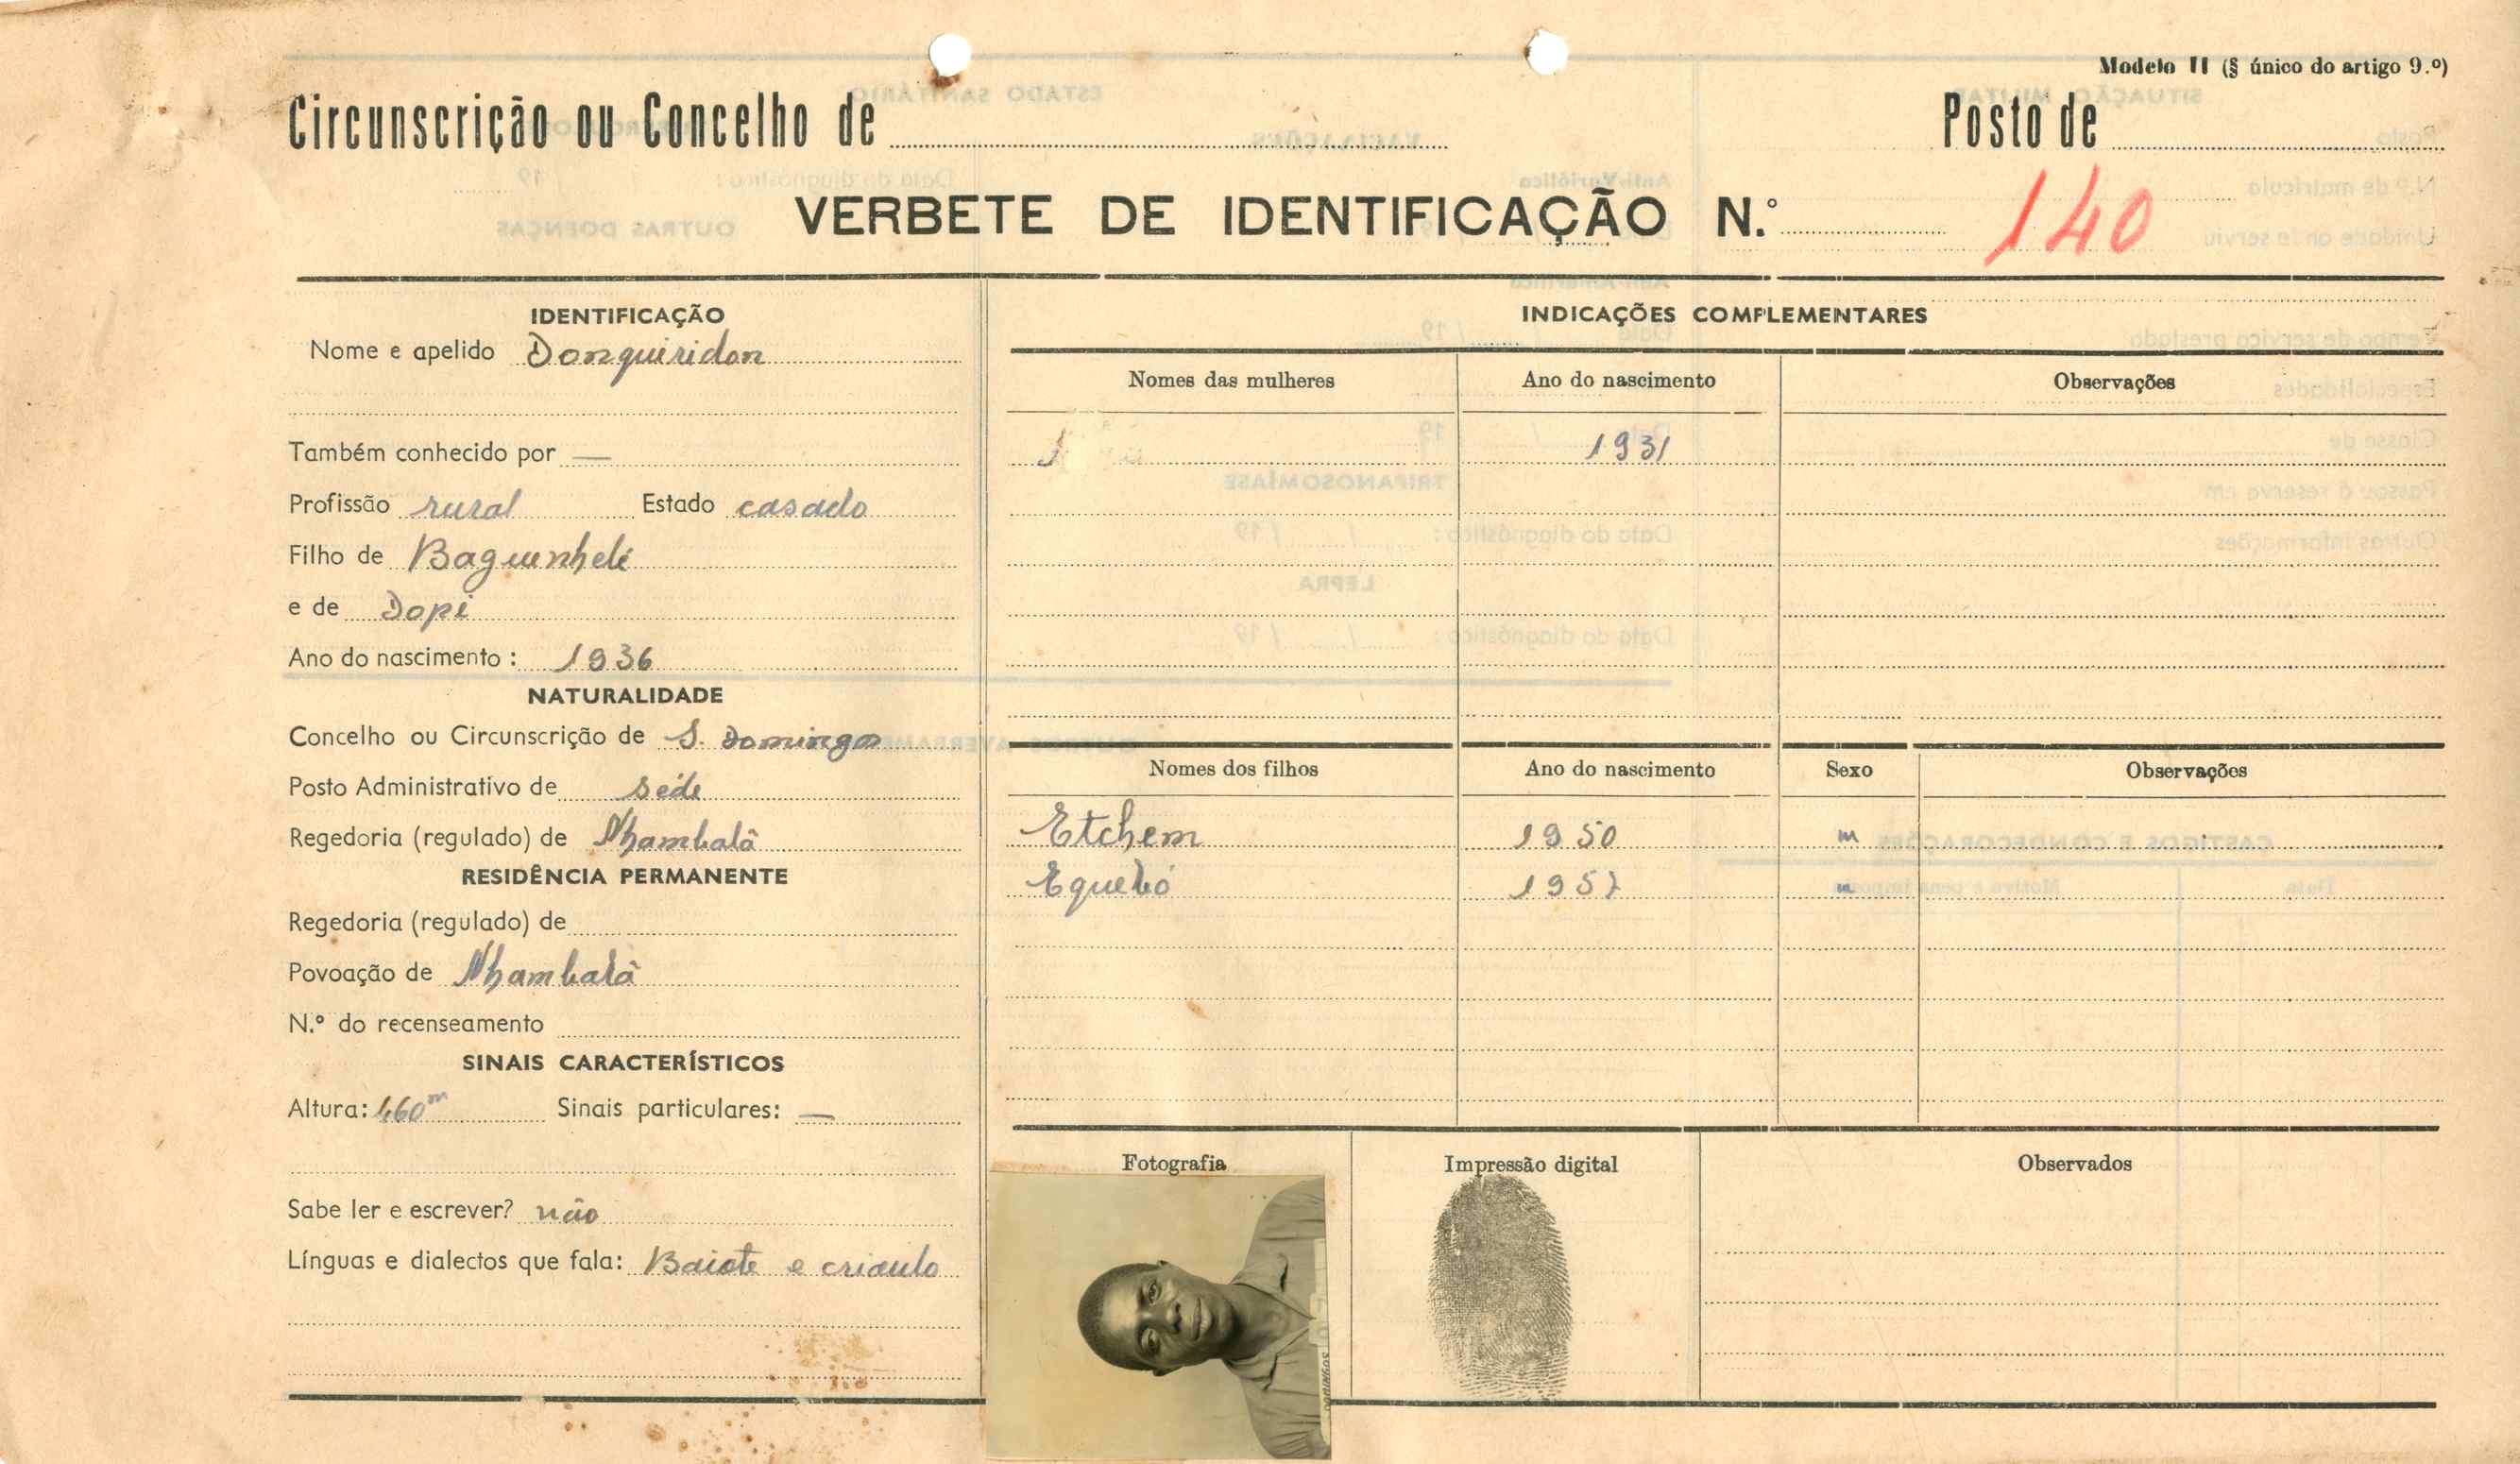 Modelo II (§ único do artigo 9.º)
Circunscrição ou Concelho de
Posto de
VERBETE DE IDENTIFICAÇÃO N.º 140
IDENTIFICAÇÃO
Nome e apelido Donquiridon
Também conhecido por —
Profissão rural Estado casado
Filho de Baguinhelé
e de Dopi
Ano do nascimento: 1936
NATURALIDADE
Concelho ou Circunscrição de S. Domingos
Posto Administrativo de séde
Regedoria (regulado) de Nhambalã
RESIDÊNCIA PERMANENTE
Regedoria (regulado) de
Povoação de Nhambalã
N.º do recenseamento
SINAIS CARACTERÍSTICOS
Altura: 1,60m Sinais particulares: —
Sabe ler e escrever? não
Línguas e dialectos que fala: Baiote e crioulo
INDICAÇÕES COMPLEMENTARES
Nomes das mulheres Ano do nascimento Observações
1931
Nomes dos filhos Ano do nascimento Sexo Observações
Etchem 1950 m
Equebó 1957 m
Fotografia
Impressão digital
Observados